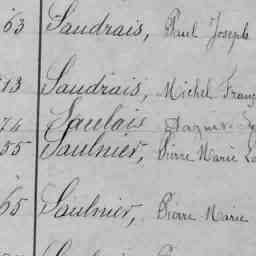 63 Saudrais, Paul Joseph
13 Saudrais, Michel Franç
74 Saulais
55 Saulnier, Pierre Marie Lo
65 Saulnier, Pierre Marie